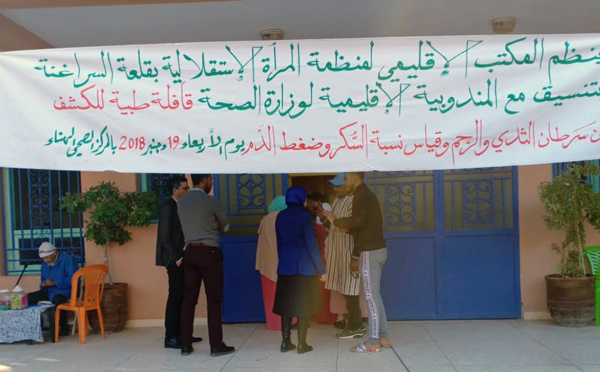 ينظم المكتب الإقليمي لمنظمة المرأة الإستقلالية بقلعة السراغنة
بتنسيق مع المندوبية الإقليمية لوزارة الصحة قافلة طبية للكشف
عن سرطان الثدي والرحم وقياس نسبة السكر وضغط الدم يوم الأربعاء 19 دجنبر 2018 بالمركز الصحي الهناء